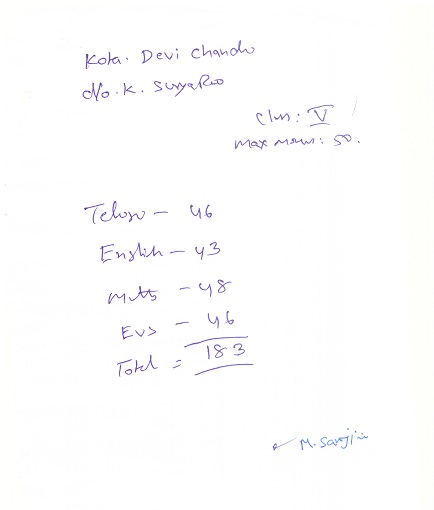 Kota. Devi Chandu
D/o. K. SuryaRao
Class: V
max marks: 50.
Telugu - 46
English - 43
Maths - 48
EVS - 46
Total = 183
M. Sarojini